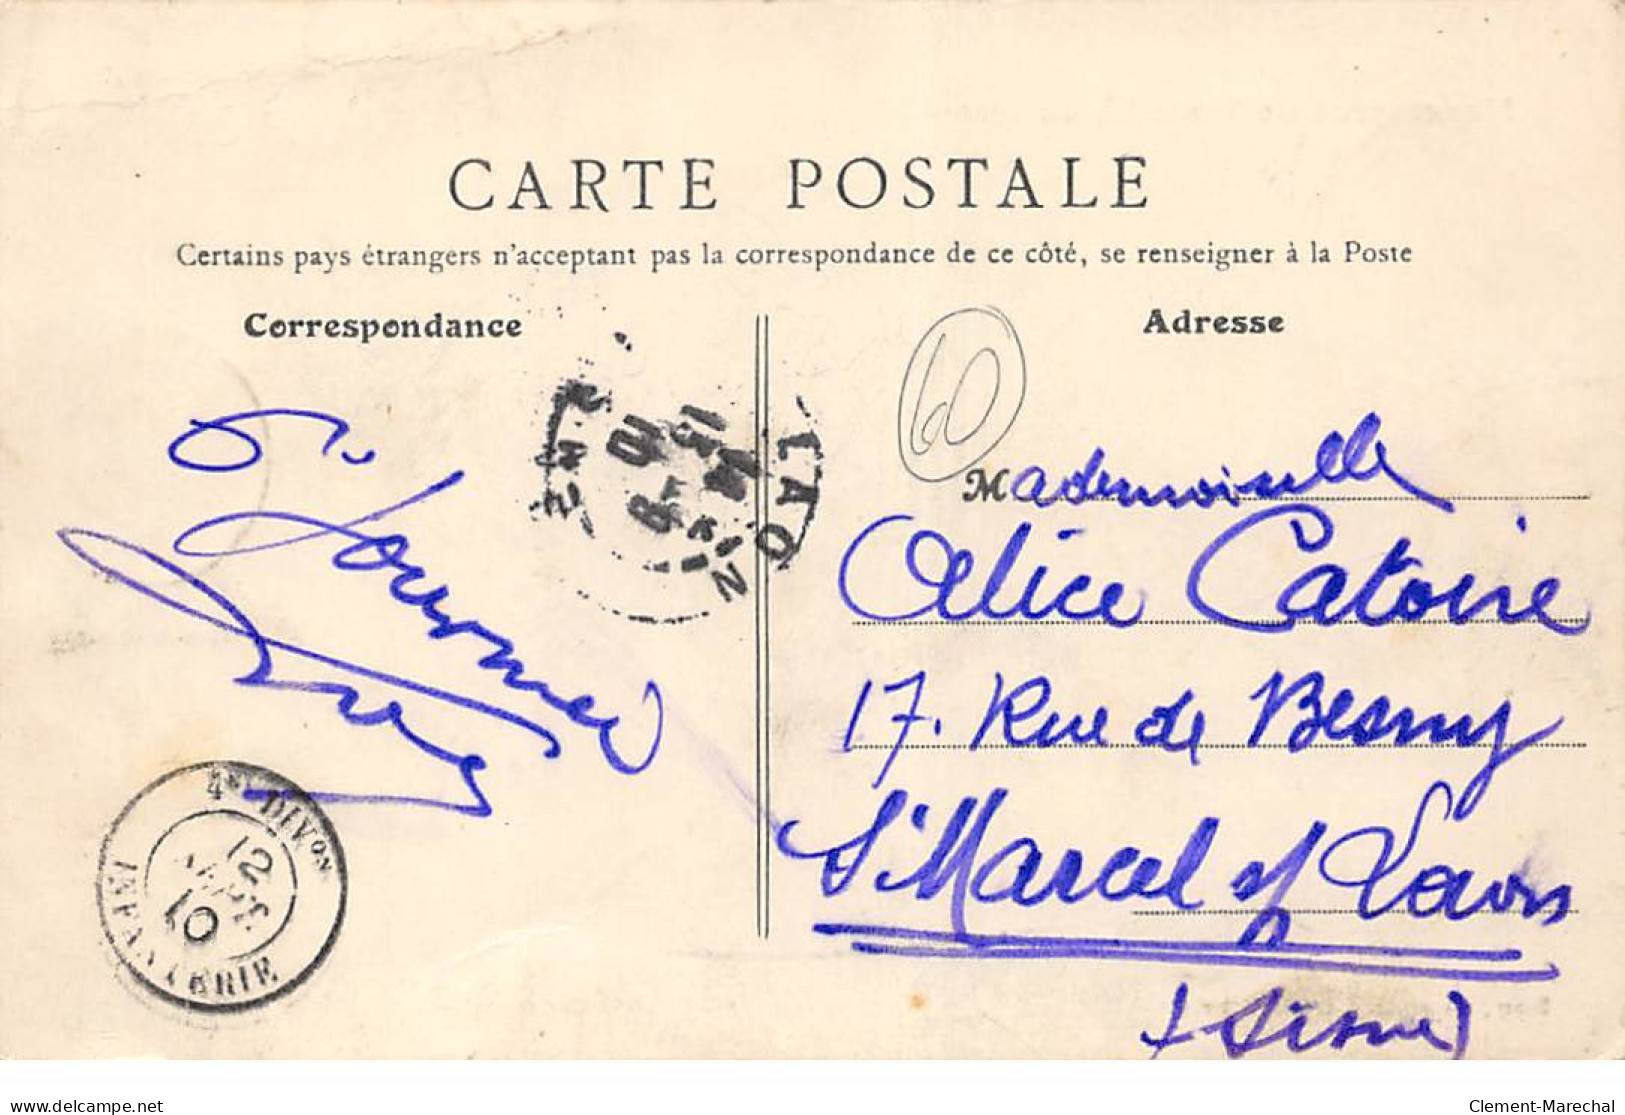 CARTE POSTALE
Certains pays étrangers n'acceptant pas la correspondance de ce côté, se renseigner à la Poste
Correspondance
Adresse
60
Mademoiselle
Alice Catoire
17. Rue de Besmy
St Marcel s/ Laon
(Aisne)
LAON
AISNE
4e DIVon
INFANTERIE
12
MARS
10
delcampe.net
Clement-Marechal